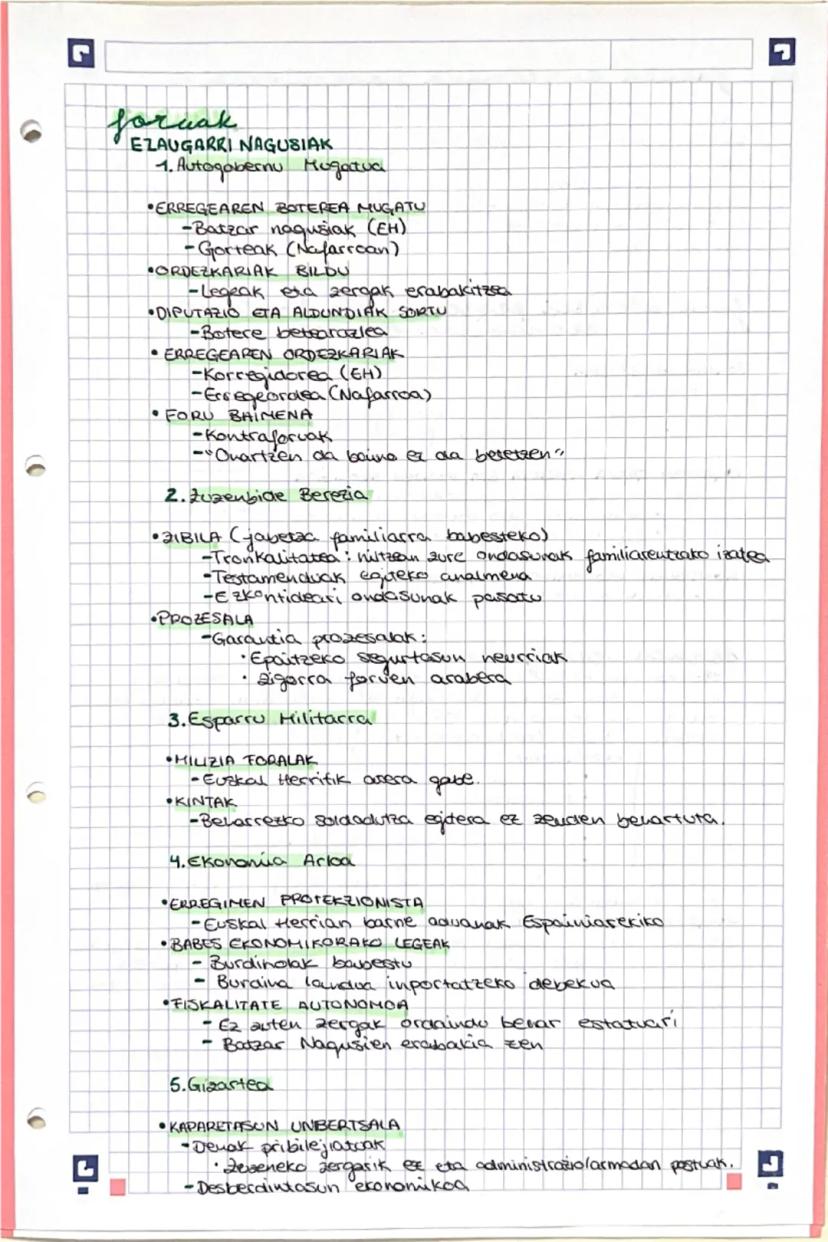 foruak
EZAUGARRI NAGUSIAK
1. Autogobernu Mugatua
•ERREGEAREN BOTEREA MUGATU
-Batzar nagusiak (EH)
-Gorteak (Nafarroan)
•ORDEZKARIAK BILDU
-Legeak eta zergak erabakitzea
•DIPUTAZIO ETA ALDUNDIAK SORTU
-Botere betearazlea
•ERREGEAREN ORDEZKARIAK
-Korregidorea (EH)
-Erregeordea (Nafarroa)
•FORU BAIMENA
-Kontraforuak
-"Onartzen da baina ez da betetzen"
2. Zuzenbide Berezia
•ZIBILA (jabetza familiarra babesteko)
-Tronkalitatea: hiltzean zure ondasunak familiarentzako izatea
-Testamenduak egiteko ahalmena
-Ezkontideari ondasunak pasatu
•PROZESALA
-Garantia prozesalak:
•Epaitzeko segurtasun neurriak
•Zigorra foruen arabera
3. Esparru Militarra
•MILIZIA FORALAK
-Euskal Herritik atera gabe.
•KINTAK
-Beharrezko soldadutza egitera ez zeuden behartuta.
4. Ekonomia Arloa
•ERREGIMEN PROTEKZIONISTA
-Euskal Herrian barne aduanak Espainiarekiko
•BABES EKONOMIKORAKO LEGEAK
- Burdinolak babestu
- Burdina landua inportatzeko debekua
•FISKALITATE AUTONOMOA
-Ez zuten zergak ordaindu behar estatuari
- Batzar Nagusien erabakia zen
5. Gizartea
•KAPARETASUN UNBERTSALA
-Denak pribilejiatuak
•Zuzeneko zergarik ez eta administrazio/armadan postuak.
-Desberdintasun ekonomikoa